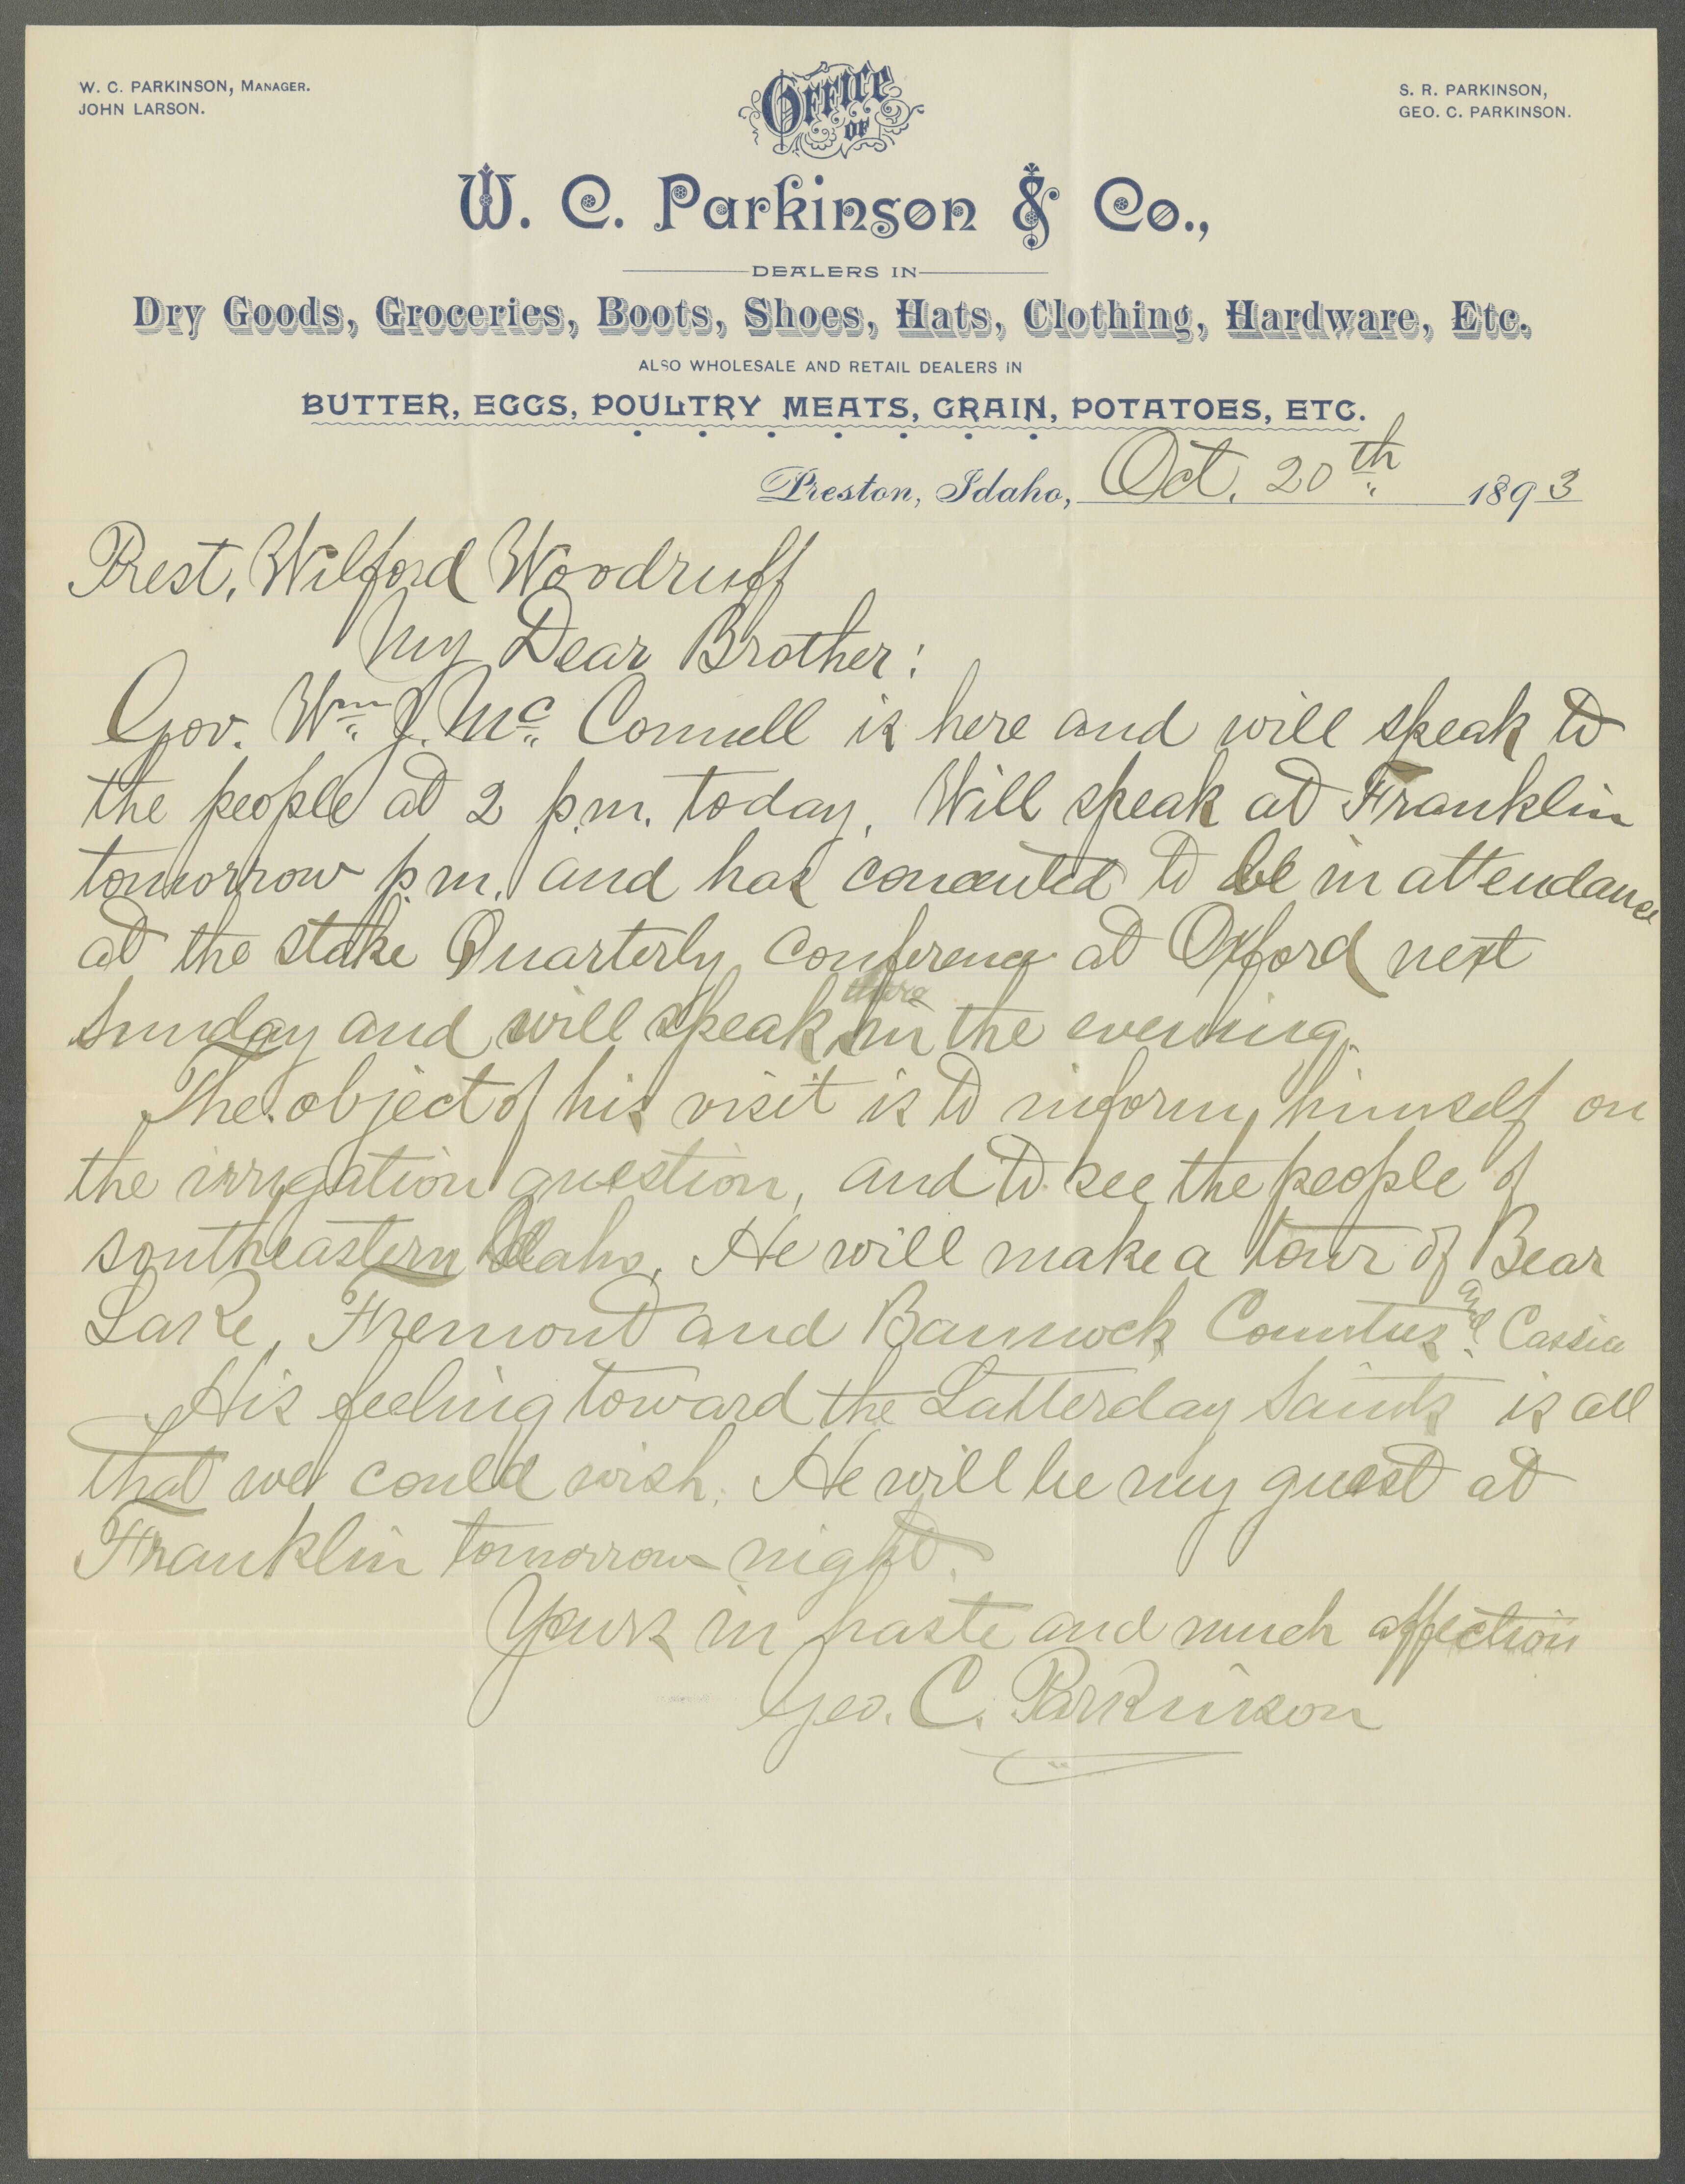 W. C. PARKINSON, MANAGER.
JOHN LARSON.
S. R. PARKINSON,
GEO. C. PARKINSON.
OFFICE
OF
W. C. Parkinson & Co.,
DEALERS IN
Dry Goods, Groceries, Boots, Shoes, Hats, Clothing, Hardware, Etc.
ALSO WHOLESALE AND RETAIL DEALERS IN
BUTTER, EGGS, POULTRY MEATS, GRAIN, POTATOES, ETC.
Preston, Idaho, Oct. 20th 1893
Prest. Wilford Woodruff
My Dear Brother:
Gov. Wm J. Mc Connell is here and will speak to
the people at 2 p.m. today. Will speak at Franklin
tomorrow p.m. and has concented to be in attendance
at the stake Quarterly Conference at Oxford next
Sunday and will speak there in the evening.
The object of his visit is to inform himself on
the irrigation question, and to see the people of
southeastern Idaho. He will make a tour of Bear
Lake, Fremont and Bannock Counties and Cassia
His feeling toward the Latterday Saints is all
that we could wish. He will be my guest at
Franklin tomorrow night.
Yours in haste and much affection
Geo. C. Parkinson